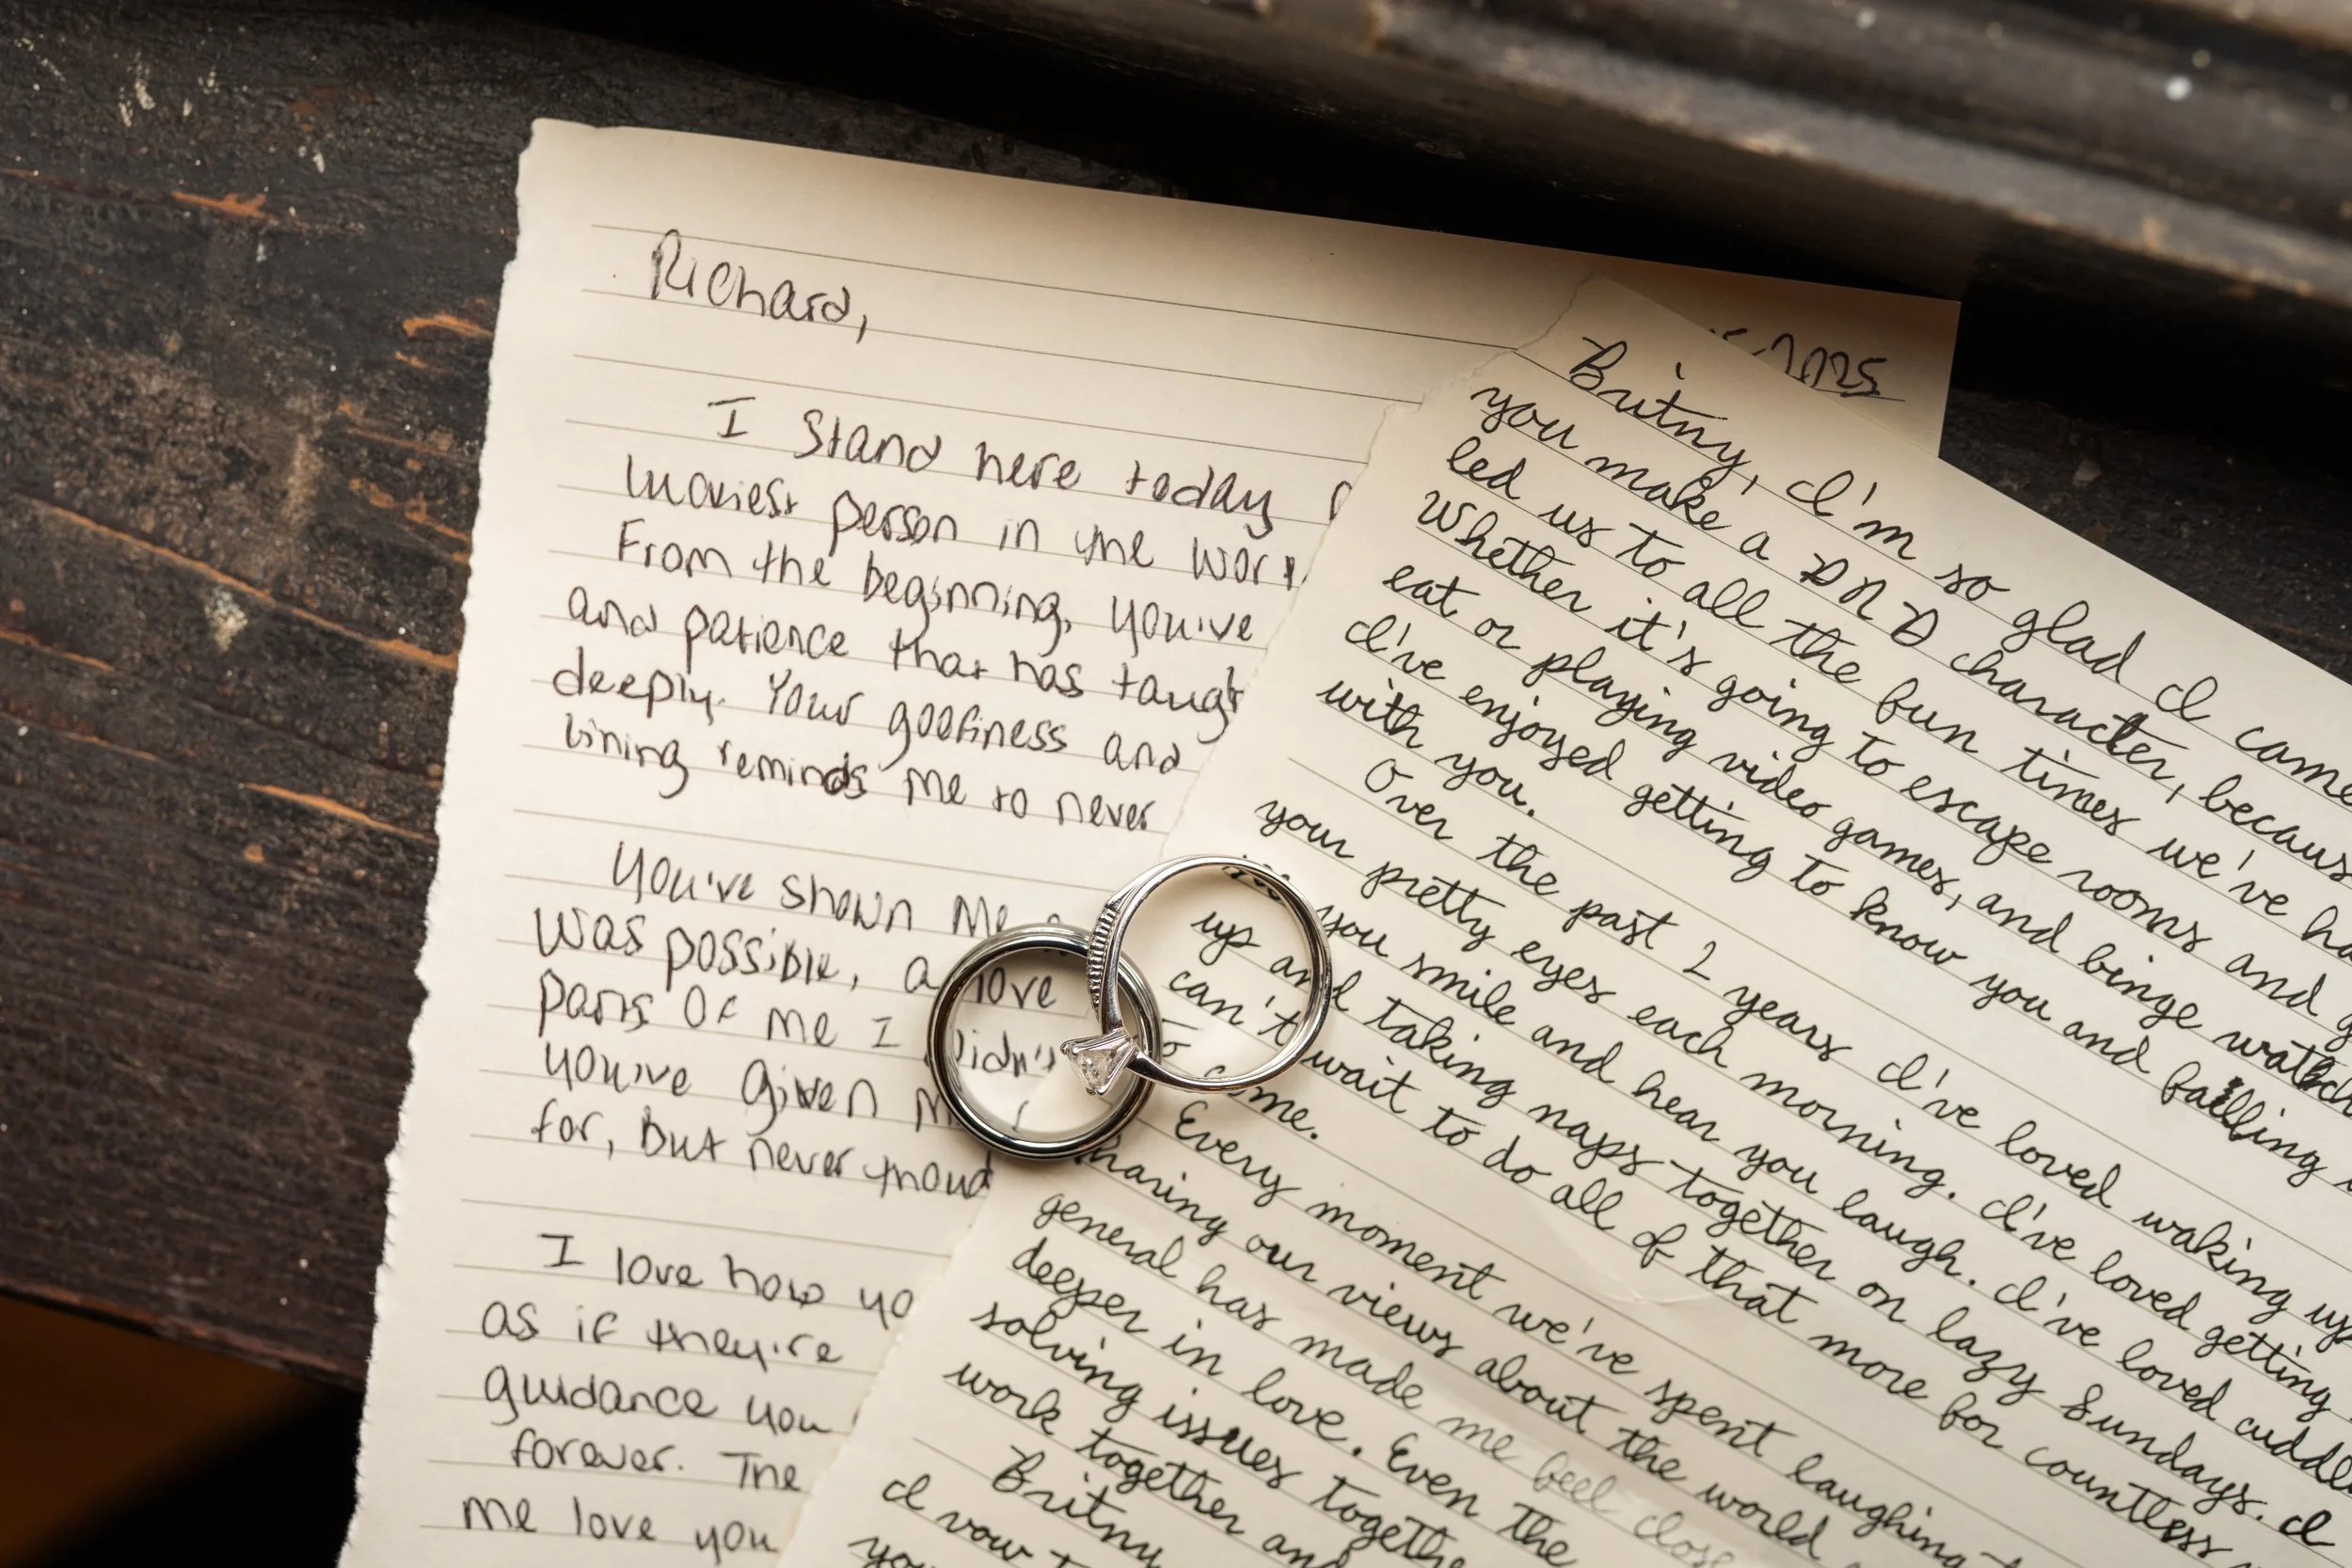 Richard,
I stand here today
luckiest person in the
From the beginning, you've
and patience that has taught
deeply. Your goofiness and
lining reminds me to never
You've shown me
was possible, a love
parts of me I didn't
you've given
for, but never
I love how
as if they're
guidance you
forever. The
me love you
2025
Britny, I'm so glad I came
you make a DND character, because
led us to all the fun times we've
Whether it's going to escape rooms and
eat or playing video games, and binge
I've enjoyed getting to know you and falling
with you.
Over the past 2 years I've loved waking up
your pretty eyes each morning. I've loved getting
you smile and hear you laugh. I've loved
up and taking naps together on lazy Sundays. I
can't wait to do all of that more for countless
to come.
Every moment we've spent laughing
sharing our views about the world
general has made me feel
deeper in love. Even the
solving issues
work together and
Britny
I vow